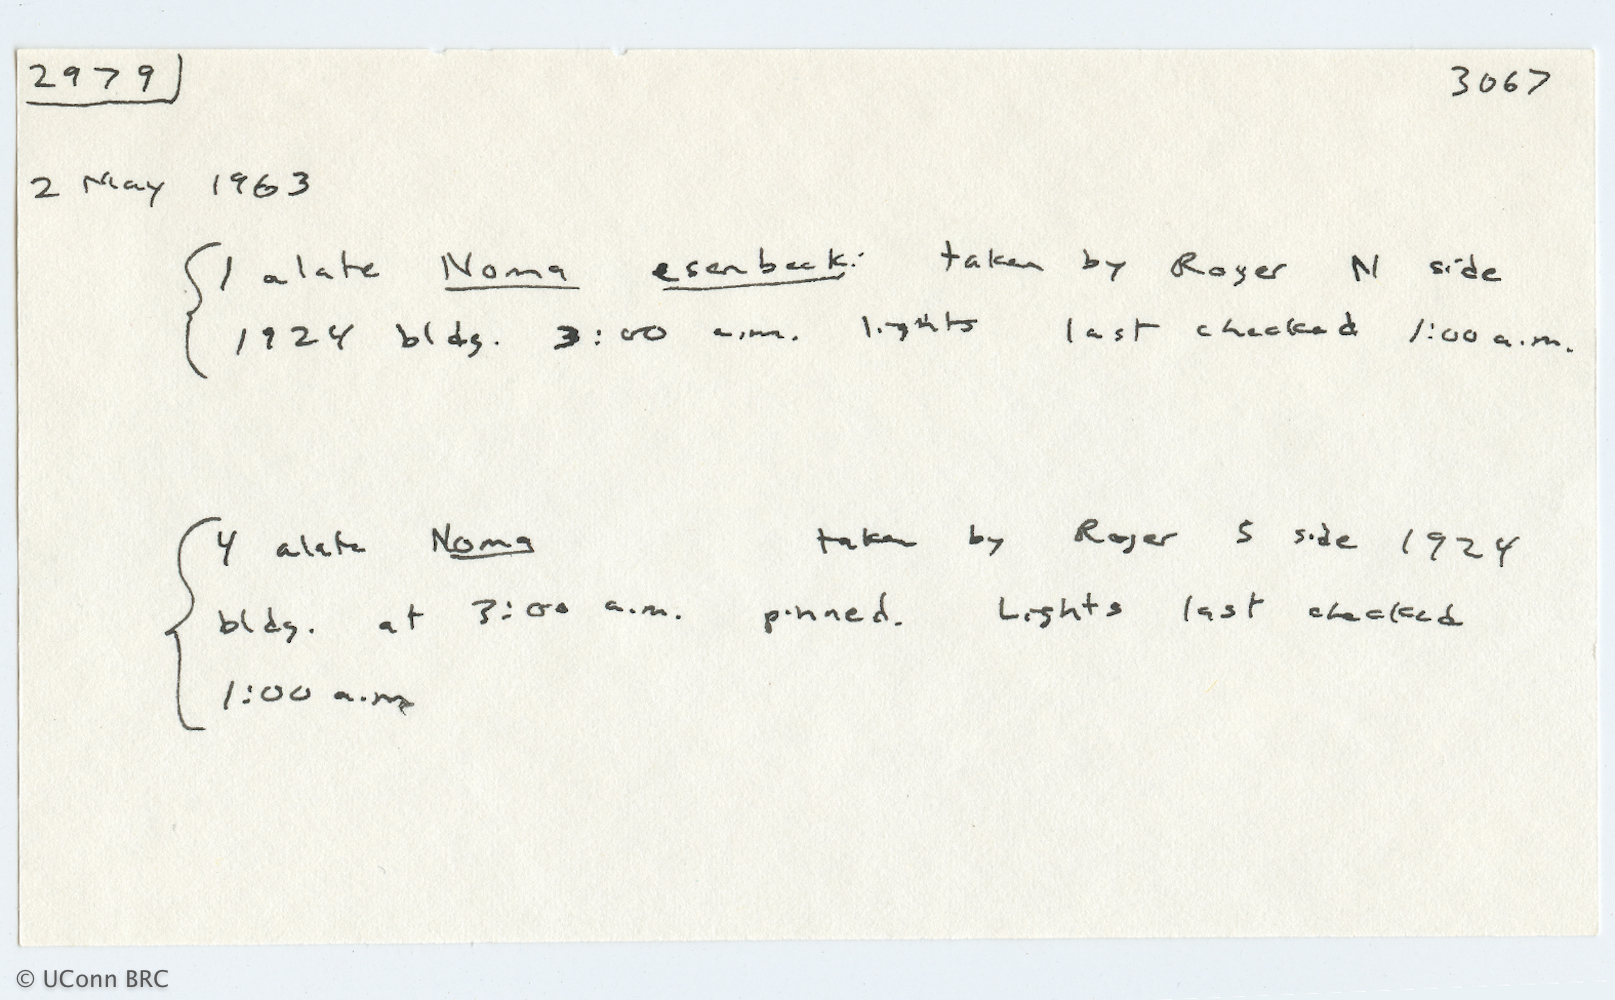 2979 3067
2 May 1963
1 alate Noma esenbecki taken by Roger N side
1924 bldg. 3:00 a.m. lights last checked 1:00 a.m.
4 alate Noma taken by Roger S side 1924
bldg. at 3:00 a.m. pinned. Lights last checked
1:00 a.m
© UConn BRC